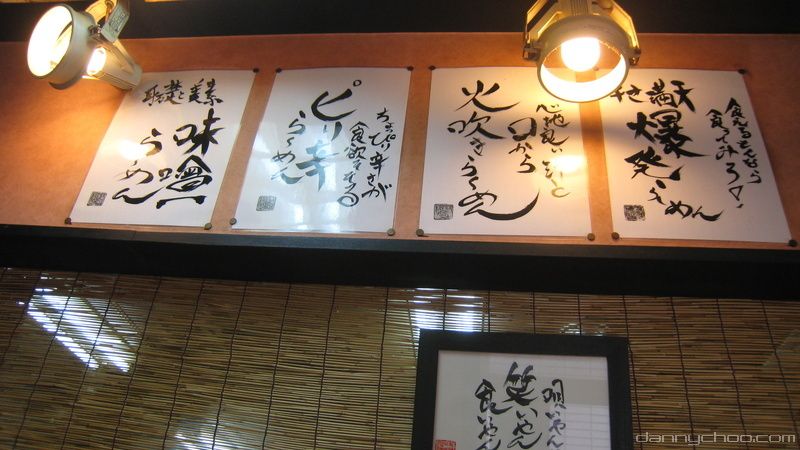 食えるもんなら
食ってみろ!
爆発
らーめん
口から
火吹きらーめん
ちょっぴり辛さが
食欲そそる
ピリ辛
らーめん
味噌
らーめん
唄いやん
笑いやん
食いやん
dannychoo.com